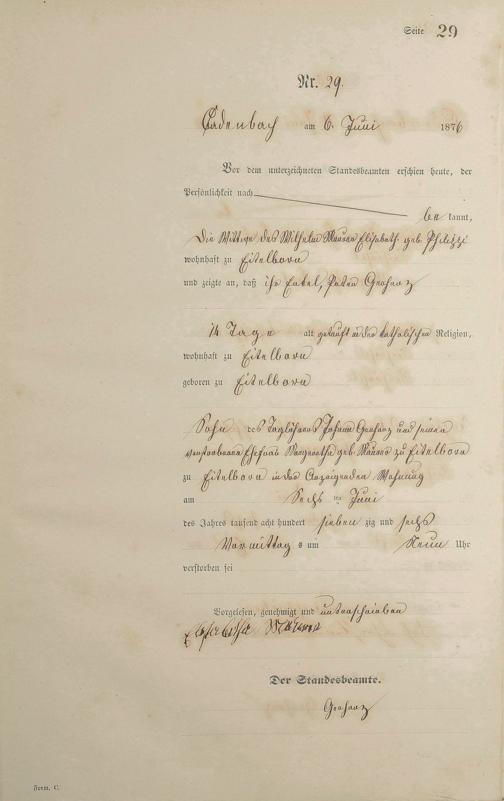 Seite 29
Nr. 29.
Cadenbach am 6. Juni 1876
Vor dem unterzeichneten Standesbeamten erschien heute, der
Persönlichkeit nach
be kannt,
Die Wittwe des Wilhelm Maurer Elisabeth geb. Philippi
wohnhaft zu Eitelborn
und zeigte an, daß ihr Enkel, Peter Gerharz
14 Tage alt getauft in der katholischen Religion,
wohnhaft zu Eitelborn
geboren zu Eitelborn
Sohn des Taglöhners Johann Gerharz und seiner
verstorbenen Ehefrau Margaretha geb. Maurer zu Eitelborn
zu Eitelborn in der Anzeigenden Wohnung
am Sechs ten Juni
des Jahres tausend acht hundert sieben zig und sechs
Vormittag s um Neun Uhr
verstorben sei
Vorgelesen, genehmigt und unterschrieben
Elisabetha Maurer
Der Standesbeamte.
Gerharz
Form. C.